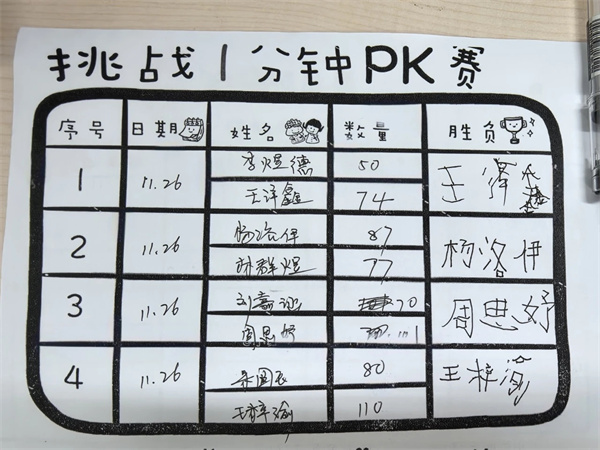 挑战1分钟PK赛
序号 日期 姓名 数量 胜负
1 11.26 李煜德 50 王泽
王泽鑫 74
2 11.26 杨洛伊 87 杨洛伊
孙群煜 77
3 11.26 刘嘉 70 周思妤
周思妤
4 11.26 80 王梓渝
王梓渝 110